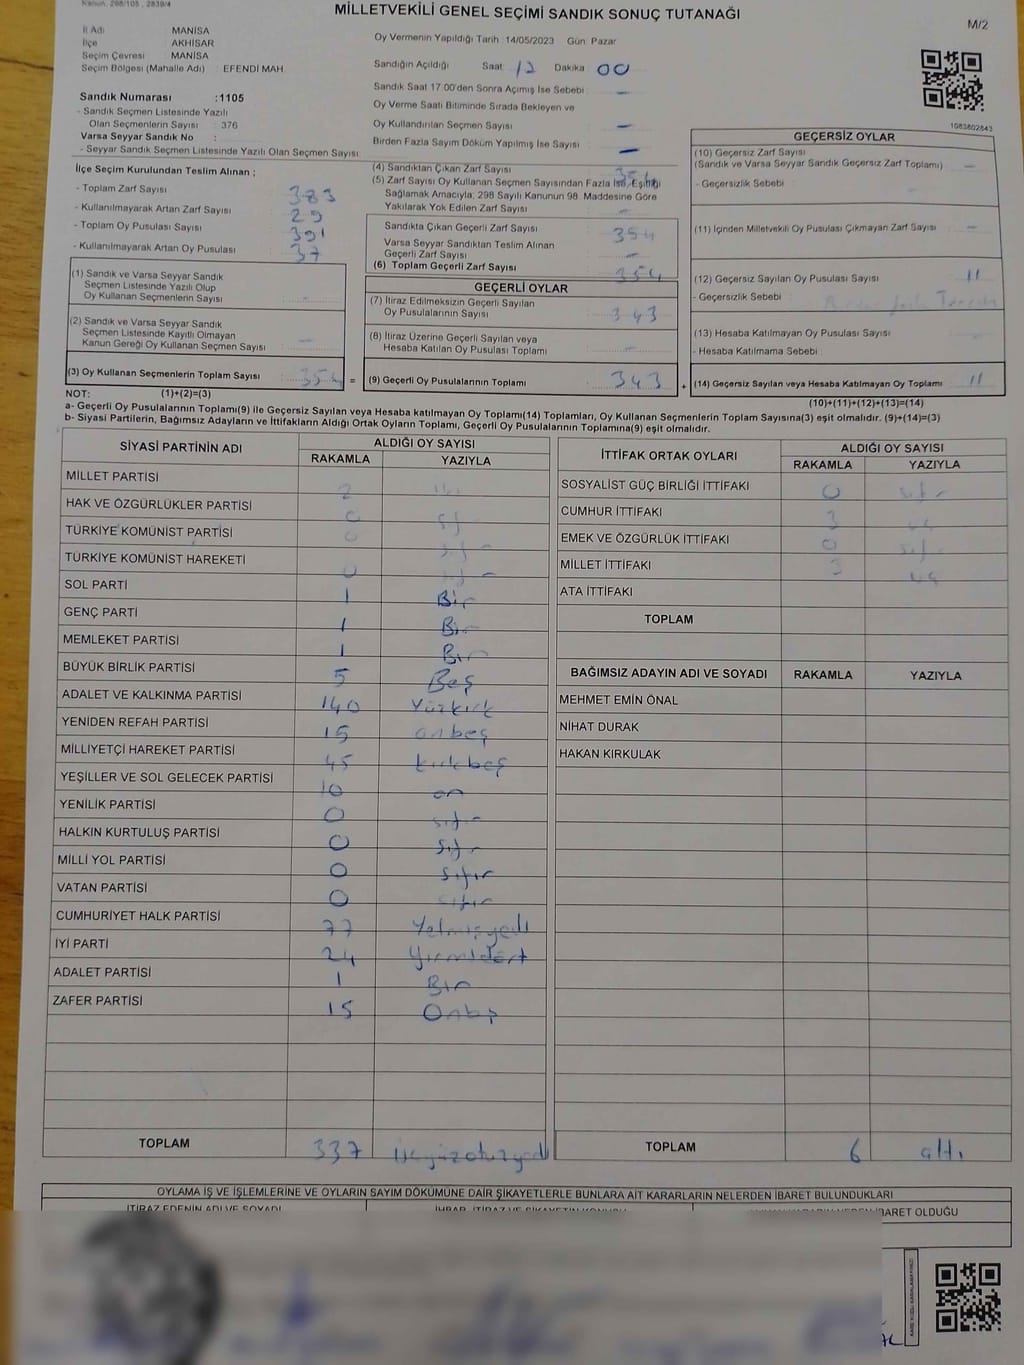 Kanun, 298/105 , 2839/4
MİLLETVEKİLİ GENEL SEÇİMİ SANDIK SONUÇ TUTANAĞI
M/2
İl Adı MANİSA
İlçe AKHİSAR
Seçim Çevresi MANİSA
Seçim Bölgesi (Mahalle Adı) : EFENDİ MAH.
Oy Vermenin Yapıldığı Tarih :14/05/2023 Gün: Pazar
Sandığın Açıldığı Saat 17 Dakika 00
Sandık Saat 17:00'den Sonra Açımış İse Sebebi : –
Oy Verme Saati Bitiminde Sırada Bekleyen ve
Oy Kullandırılan Seçmen Sayısı –
Birden Fazla Sayım Döküm Yapılmış İse Sayısı –
Sandık Numarası :1105
- Sandık Seçmen Listesinde Yazılı
Olan Seçmenlerin Sayısı : 376
Varsa Seyyar Sandık No :
- Seyyar Sandık Seçmen Listesinde Yazılı Olan Seçmen Sayısı:
1083802843
İlçe Seçim Kurulundan Teslim Alınan ;
- Toplam Zarf Sayısı 383
- Kullanılmayarak Artan Zarf Sayısı : 29
- Toplam Oy Pusulası Sayısı : 391
- Kullanılmayarak Artan Oy Pusulası : 37
(1) Sandık ve Varsa Seyyar Sandık
Seçmen Listesinde Yazılı Olup
Oy Kullanan Seçmenlerin Sayısı : -
(2) Sandık ve Varsa Seyyar Sandık
Seçmen Listesinde Kayıtlı Olmayan
Kanun Gereği Oy Kullanan Seçmen Sayısı : –
(3) Oy Kullanan Seçmenlerin Toplam Sayısı : 354 =
(4) Sandıktan Çıkan Zarf Sayısı : 354
(5) Zarf Sayısı Oy Kullanan Seçmen Sayısından Fazla İse, Eşitliği
Sağlamak Amacıyla; 298 Sayılı Kanunun 98. Maddesine Göre
Yakılarak Yok Edilen Zarf Sayısı –
Sandıkta Çıkan Geçerli Zarf Sayısı : 354
Varsa Seyyar Sandıktan Teslim Alınan
Geçerli Zarf Sayısı : –
(6) Toplam Geçerli Zarf Sayısı : 354
GEÇERLİ OYLAR
(7) İtiraz Edilmeksizin Geçerli Sayılan
Oy Pusulalarının Sayısı : 343
(8) İtiraz Üzerine Geçerli Sayılan veya
Hesaba Katılan Oy Pusulası Toplamı : –
(9) Geçerli Oy Pusulalarının Toplamı : 343 +
GEÇERSİZ OYLAR
(10) Geçersiz Zarf Sayısı
(Sandık ve Varsa Seyyar Sandık Geçersiz Zarf Toplamı) –
- Geçersizlik Sebebi :
(11) İçinden Milletvekili Oy Pusulası Çıkmayan Zarf Sayısı : –
(12) Geçersiz Sayılan Oy Pusulası Sayısı : 11
- Geçersizlik Sebebi :
(13) Hesaba Katılmayan Oy Pusulası Sayısı :
- Hesaba Katılmama Sebebi :
(14) Geçersiz Sayılan veya Hesaba Katılmayan Oy Toplamı : 11
NOT: (1)+(2)=(3)
(10)+(11)+(12)+(13)=(14)
a- Geçerli Oy Pusulalarının Toplamı(9) ile Geçersiz Sayılan veya Hesaba katılmayan Oy Toplamı(14) Toplamları, Oy Kullanan Seçmenlerin Toplam Sayısına(3) eşit olmalıdır. (9)+(14)=(3)
b- Siyasi Partilerin, Bağımsız Adayların ve İttifakların Aldığı Ortak Oyların Toplamı, Geçerli Oy Pusulalarının Toplamına(9) eşit olmalıdır.
SİYASİ PARTİNİN ADI ALDIĞI OY SAYISI
RAKAMLA YAZIYLA
MİLLET PARTİSİ 2 iki
HAK VE ÖZGÜRLÜKLER PARTİSİ 0 sıfır
TÜRKİYE KOMÜNİST PARTİSİ 0 sıfır
TÜRKİYE KOMÜNİST HAREKETİ 0 sıfır
SOL PARTİ 1 Bir
GENÇ PARTİ 1 Bir
MEMLEKET PARTİSİ 1 Bir
BÜYÜK BİRLİK PARTİSİ 5 Beş
ADALET VE KALKINMA PARTİSİ 140 Yüzkırk
YENİDEN REFAH PARTİSİ 15 onbeş
MİLLİYETÇİ HAREKET PARTİSİ 45 kırkbeş
YEŞİLLER VE SOL GELECEK PARTİSİ 10 on
YENİLİK PARTİSİ 0 sıfır
HALKIN KURTULUŞ PARTİSİ 0 sıfır
MİLLİ YOL PARTİSİ 0 sıfır
VATAN PARTİSİ 0 sıfır
CUMHURİYET HALK PARTİSİ 77 Yetmişyedi
İYİ PARTİ 24 Yirmidört
ADALET PARTİSİ 1 Bir
ZAFER PARTİSİ 15 Onbeş
TOPLAM 337 üçyüzotuzyedi
İTTİFAK ORTAK OYLARI ALDIĞI OY SAYISI
RAKAMLA YAZIYLA
SOSYALİST GÜÇ BİRLİĞİ İTTİFAKI 0 sıfır
CUMHUR İTTİFAKI 3 üç
EMEK VE ÖZGÜRLÜK İTTİFAKI 0 sıfır
MİLLET İTTİFAKI 3 üç
ATA İTTİFAKI
TOPLAM
BAĞIMSIZ ADAYIN ADI VE SOYADI RAKAMLA YAZIYLA
MEHMET EMİN ÖNAL
NİHAT DURAK
HAKAN KIRKULAK
TOPLAM 6 altı
OYLAMA İŞ VE İŞLEMLERİNE VE OYLARIN SAYIM DÖKÜMÜNE DAİR ŞİKAYETLERLE BUNLARA AİT KARARLARIN NELERDEN İBARET BULUNDUKLARI
İTİRAZ EDENİN ADI VE SOYADI
İHBAR, İTİRAZ VE ŞİKAYETİN KONUSU
İBARET OLDUĞU